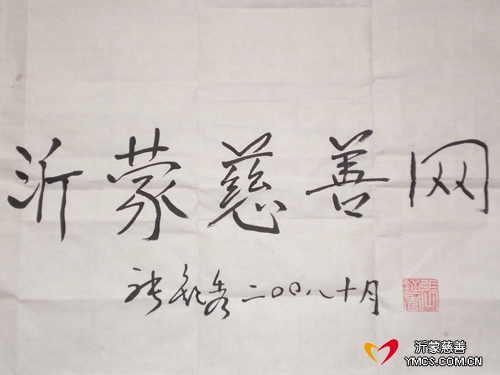 沂蒙慈善网
张 秀二〇〇八十月
沂蒙慈善
YMCS.COM.CN